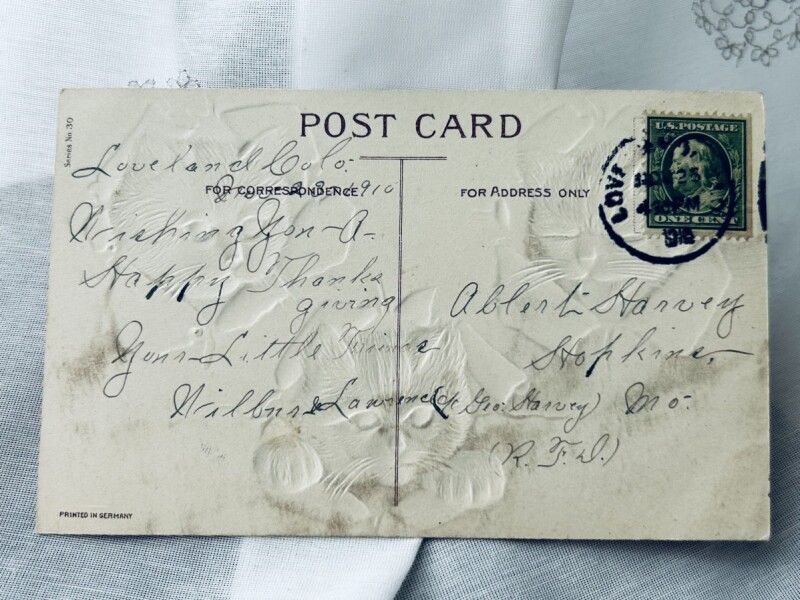 Series No. 30
POST CARD
Loveland Colo.
FOR CORRESPONDENCE
Nov 23-1910
FOR ADDRESS ONLY
Wishing You-A-
Happy Thanks
giving
Your Little Friends
Wilbur & Lawrence
Albert Harvey
Hopkins,
(% Geo. Harvey) Mo.
(R.F.D.)
U.S. POSTAGE
ONE CENT
PM
PRINTED IN GERMANY